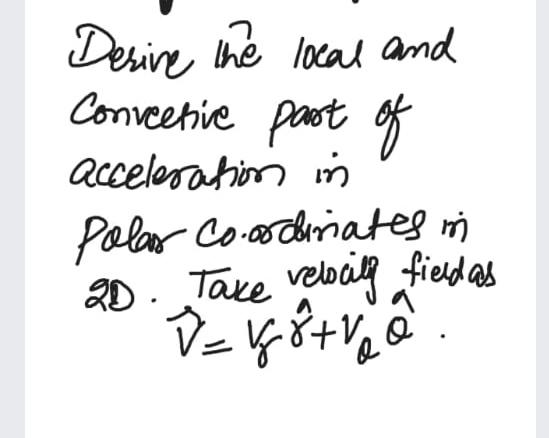 Derive the local and
Convective part of
acceleration in
Polar Co-ordinates in
2D. Take velocity field as
V⃗ = Vr r̂ + Vθ θ̂ .